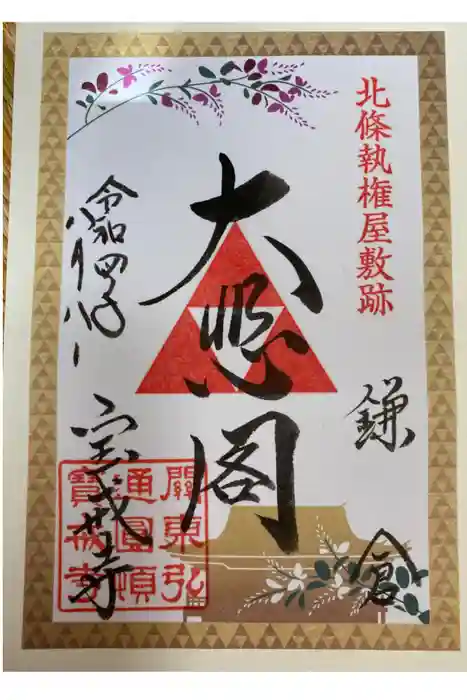 北條執権屋敷跡
鎌倉
大悲閣
令和四年
八月八日
宝戒寺
關東弘
通圓頓
寶戒寺